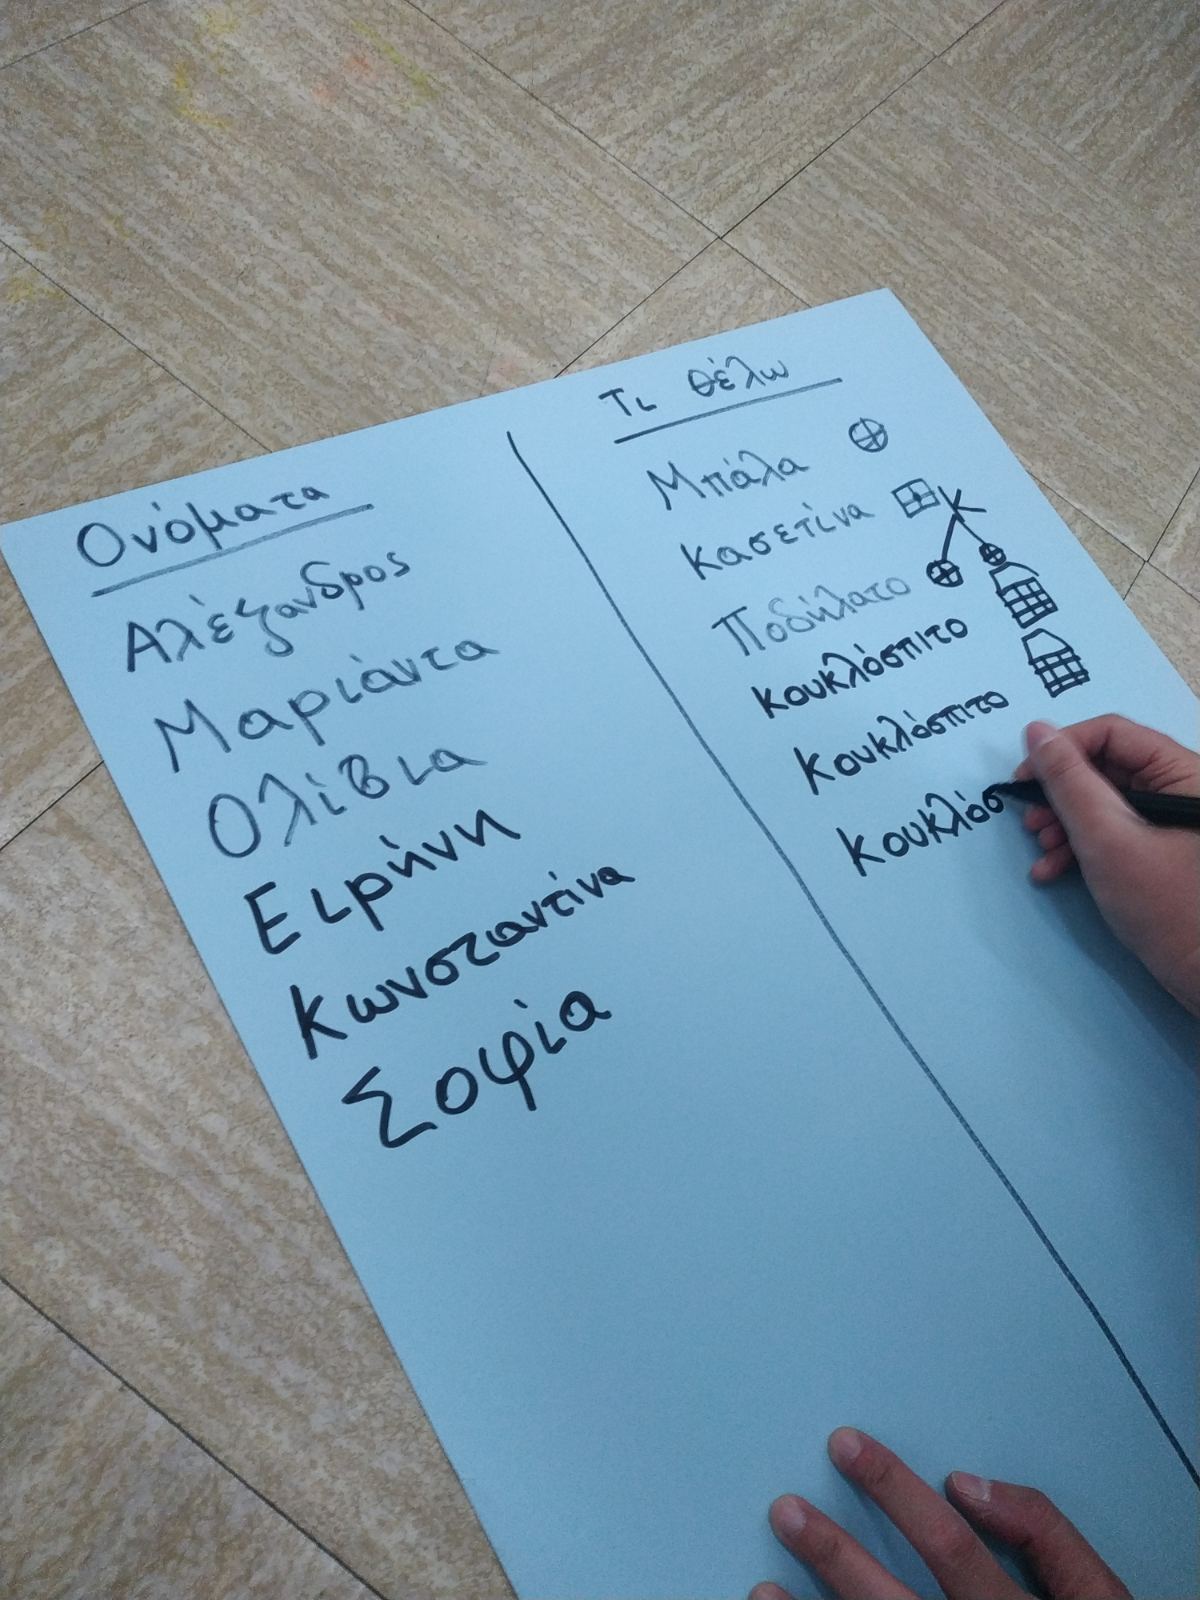 Ονόματα
Αλέξανδρος
Μαριάντα
Ολίβια
Ειρήνη
Κωνσταντίνα
Σοφία
Τι θέλω
Μπάλα
Κασετίνα
Ποδήλατο
Κουκλόσπιτο
Κουκλόσπιτο
Κουκλόσ